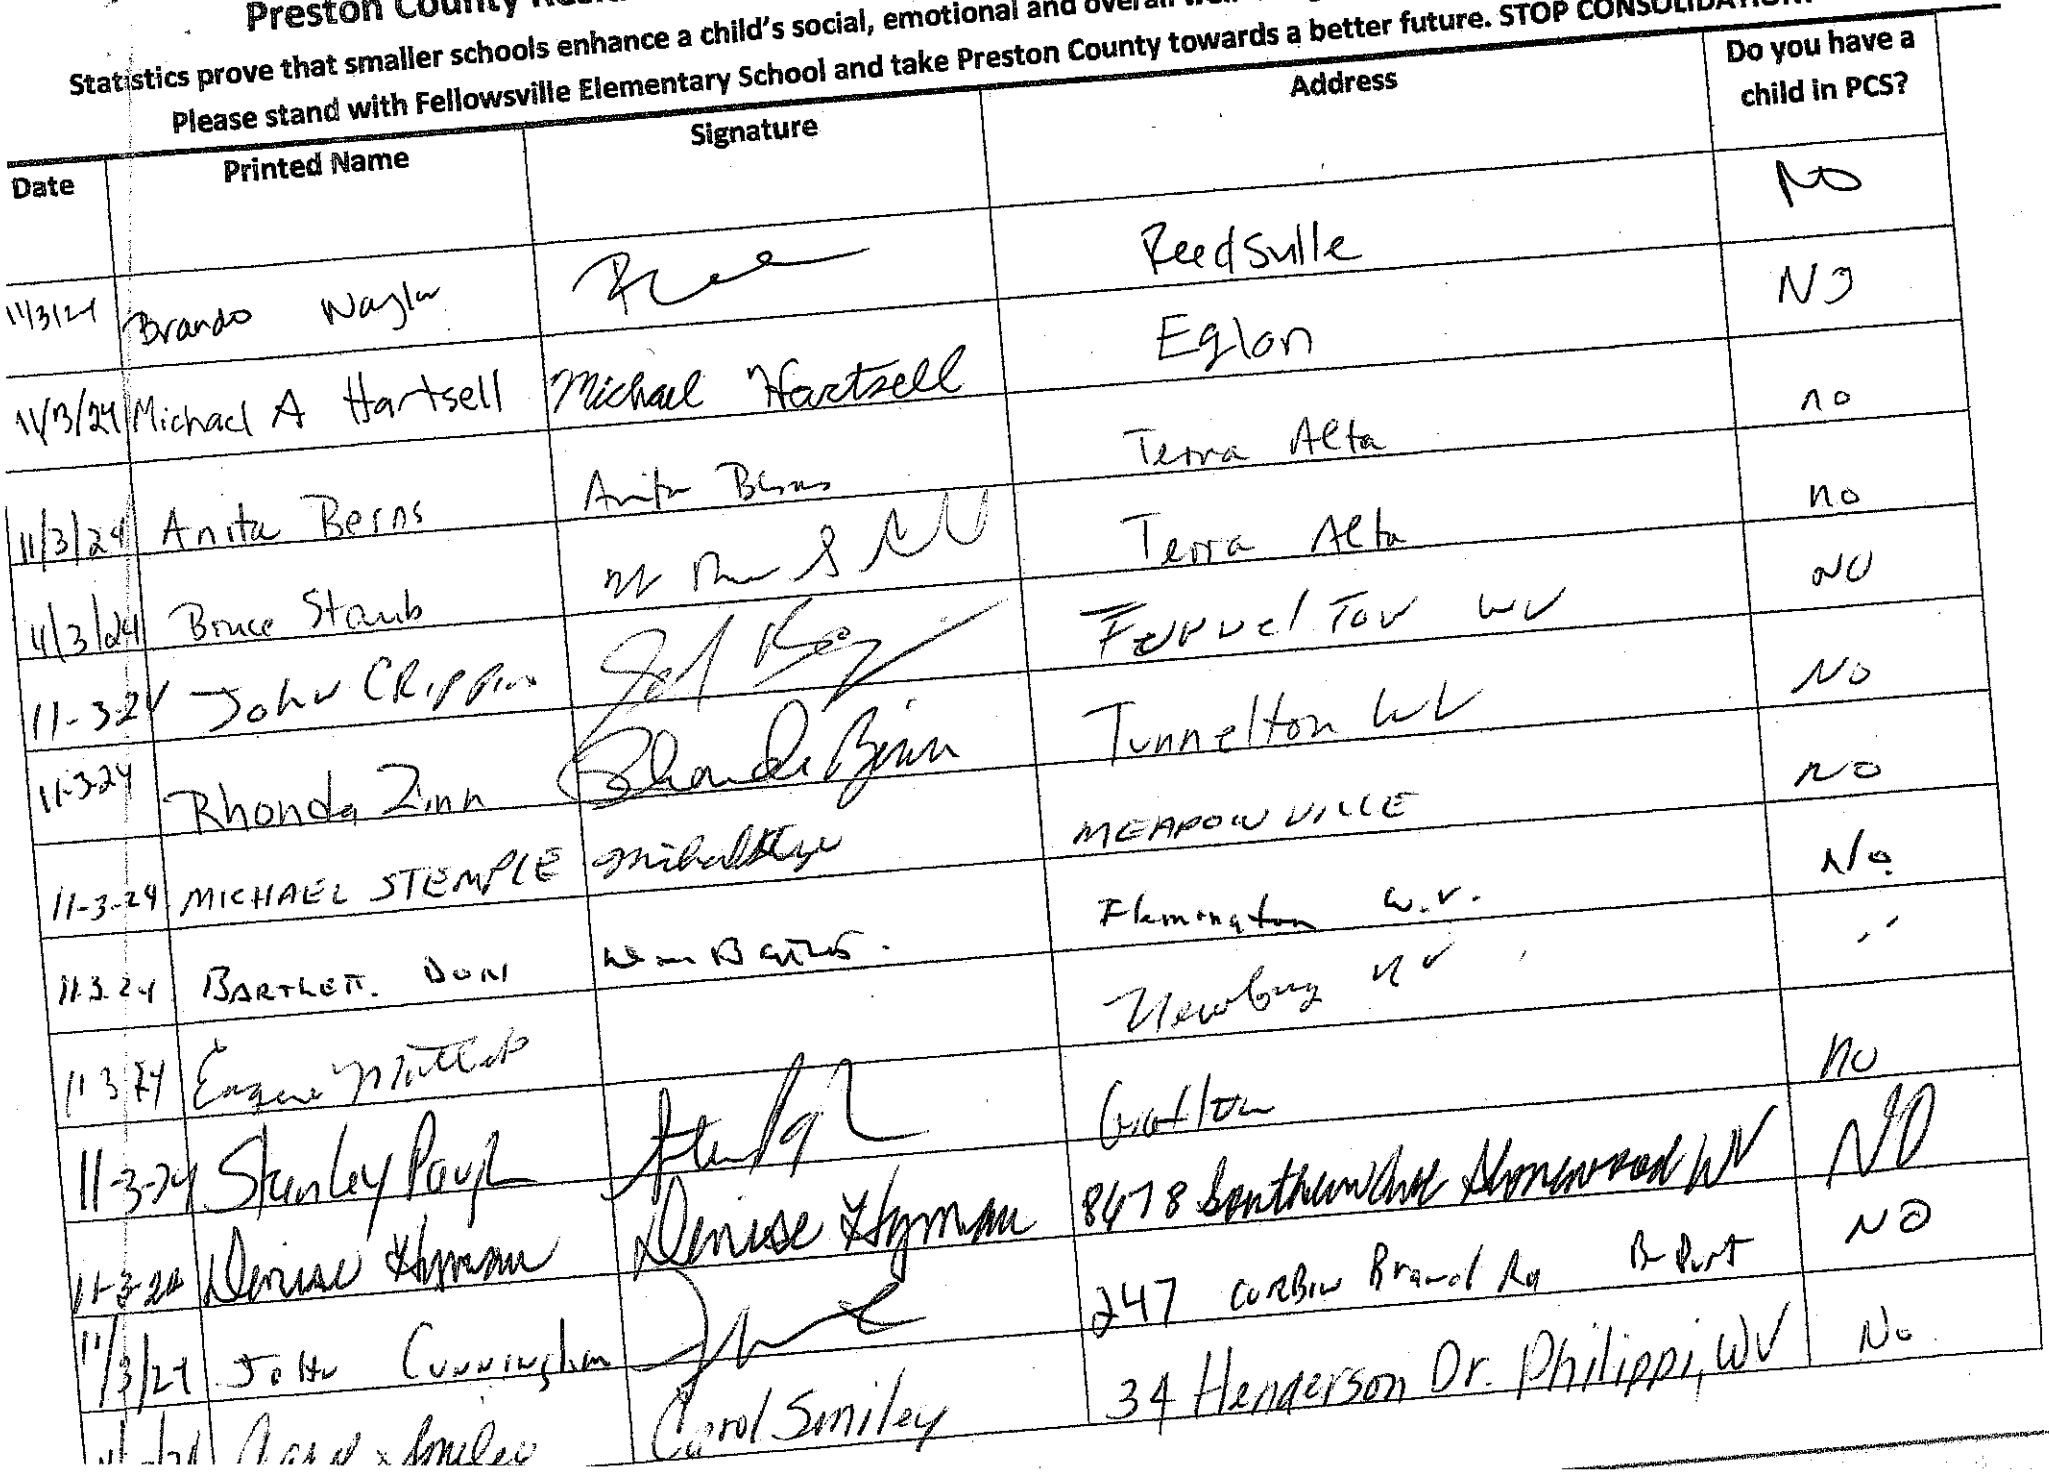 Preston County
Statistics prove that smaller schools enhance a child's social, emotional and overall
Please stand with Fellowsville Elementary School and take Preston County towards a better future. STOP CONSOLIDATION!
Date Printed Name Signature Address Do you have a child in PCS?
11/3/24 Brando Naylor Reedsville NO
11/3/24 Michael A Hartsell Michael Hartsell Eglon NO
11/3/24 Anita Berns Anita Berns Terra Alta no
11/3/24 Bruce Staub Terra Alta no
11-3-24 John CRippin WV NO
11-3-24 Rhonda Zinn Rhonda Zinn Tunnelton WV No
11-3-24 MICHAEL STEMPLE MEADOWVILLE NO
11.3.24 BARTLETT. DON Flemington W.V. No.
11 3 24 Eugene Newburg WV ״
11-3-24 Stanley Paugh no
11-3-24 Denise Hyman Denise Hyman 8478 WV NO
11/3/24 John Cunningham 247 Corbin Branch Rd B-Port NO
Carol Smiley Carol Smiley 34 Henderson Dr. Philippi, WV No